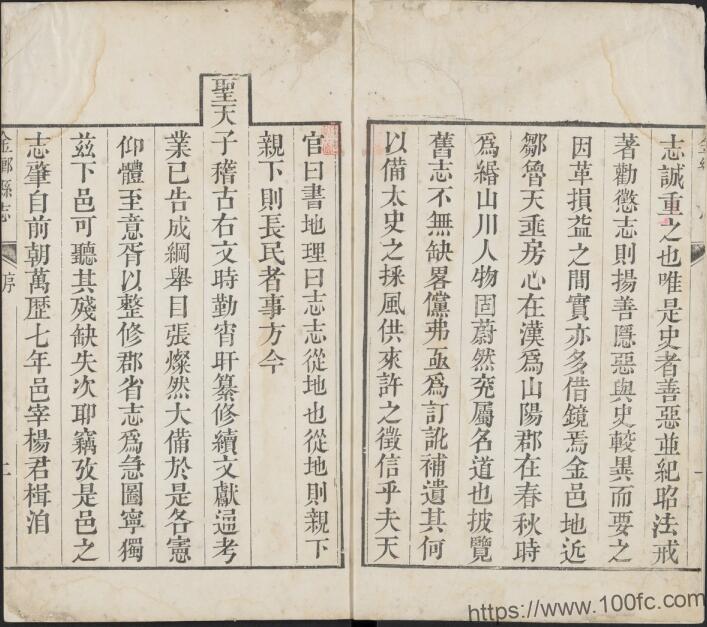 志誠重之也唯是史者善惡並紀昭法戒
著勸懲志則揚善隱惡與史較異而要之
因革損益之間實亦多借鏡焉金邑地近
鄒魯天垂房心在漢為山陽郡在春秋時
為緡山川人物固蔚然兖屬名道也披覽
舊志不無缺畧儻弗亟為訂訛補遺其何
以備太史之採風供來許之徵信乎夫天
官曰書地理曰志志從地也從地則親下
親下則長民者事方今
聖天子稽古右文時勤宵旰纂修續文獻通考
業已告成綱舉目張燦然大備於是各憲
仰體至意胥以整修郡省志為急圖寧獨
茲下邑可聽其殘缺失次耶竊攷是邑之
志肇自前朝萬歷七年邑宰楊君楫洎
金鄉縣志
序
二
https://www.100fc.com